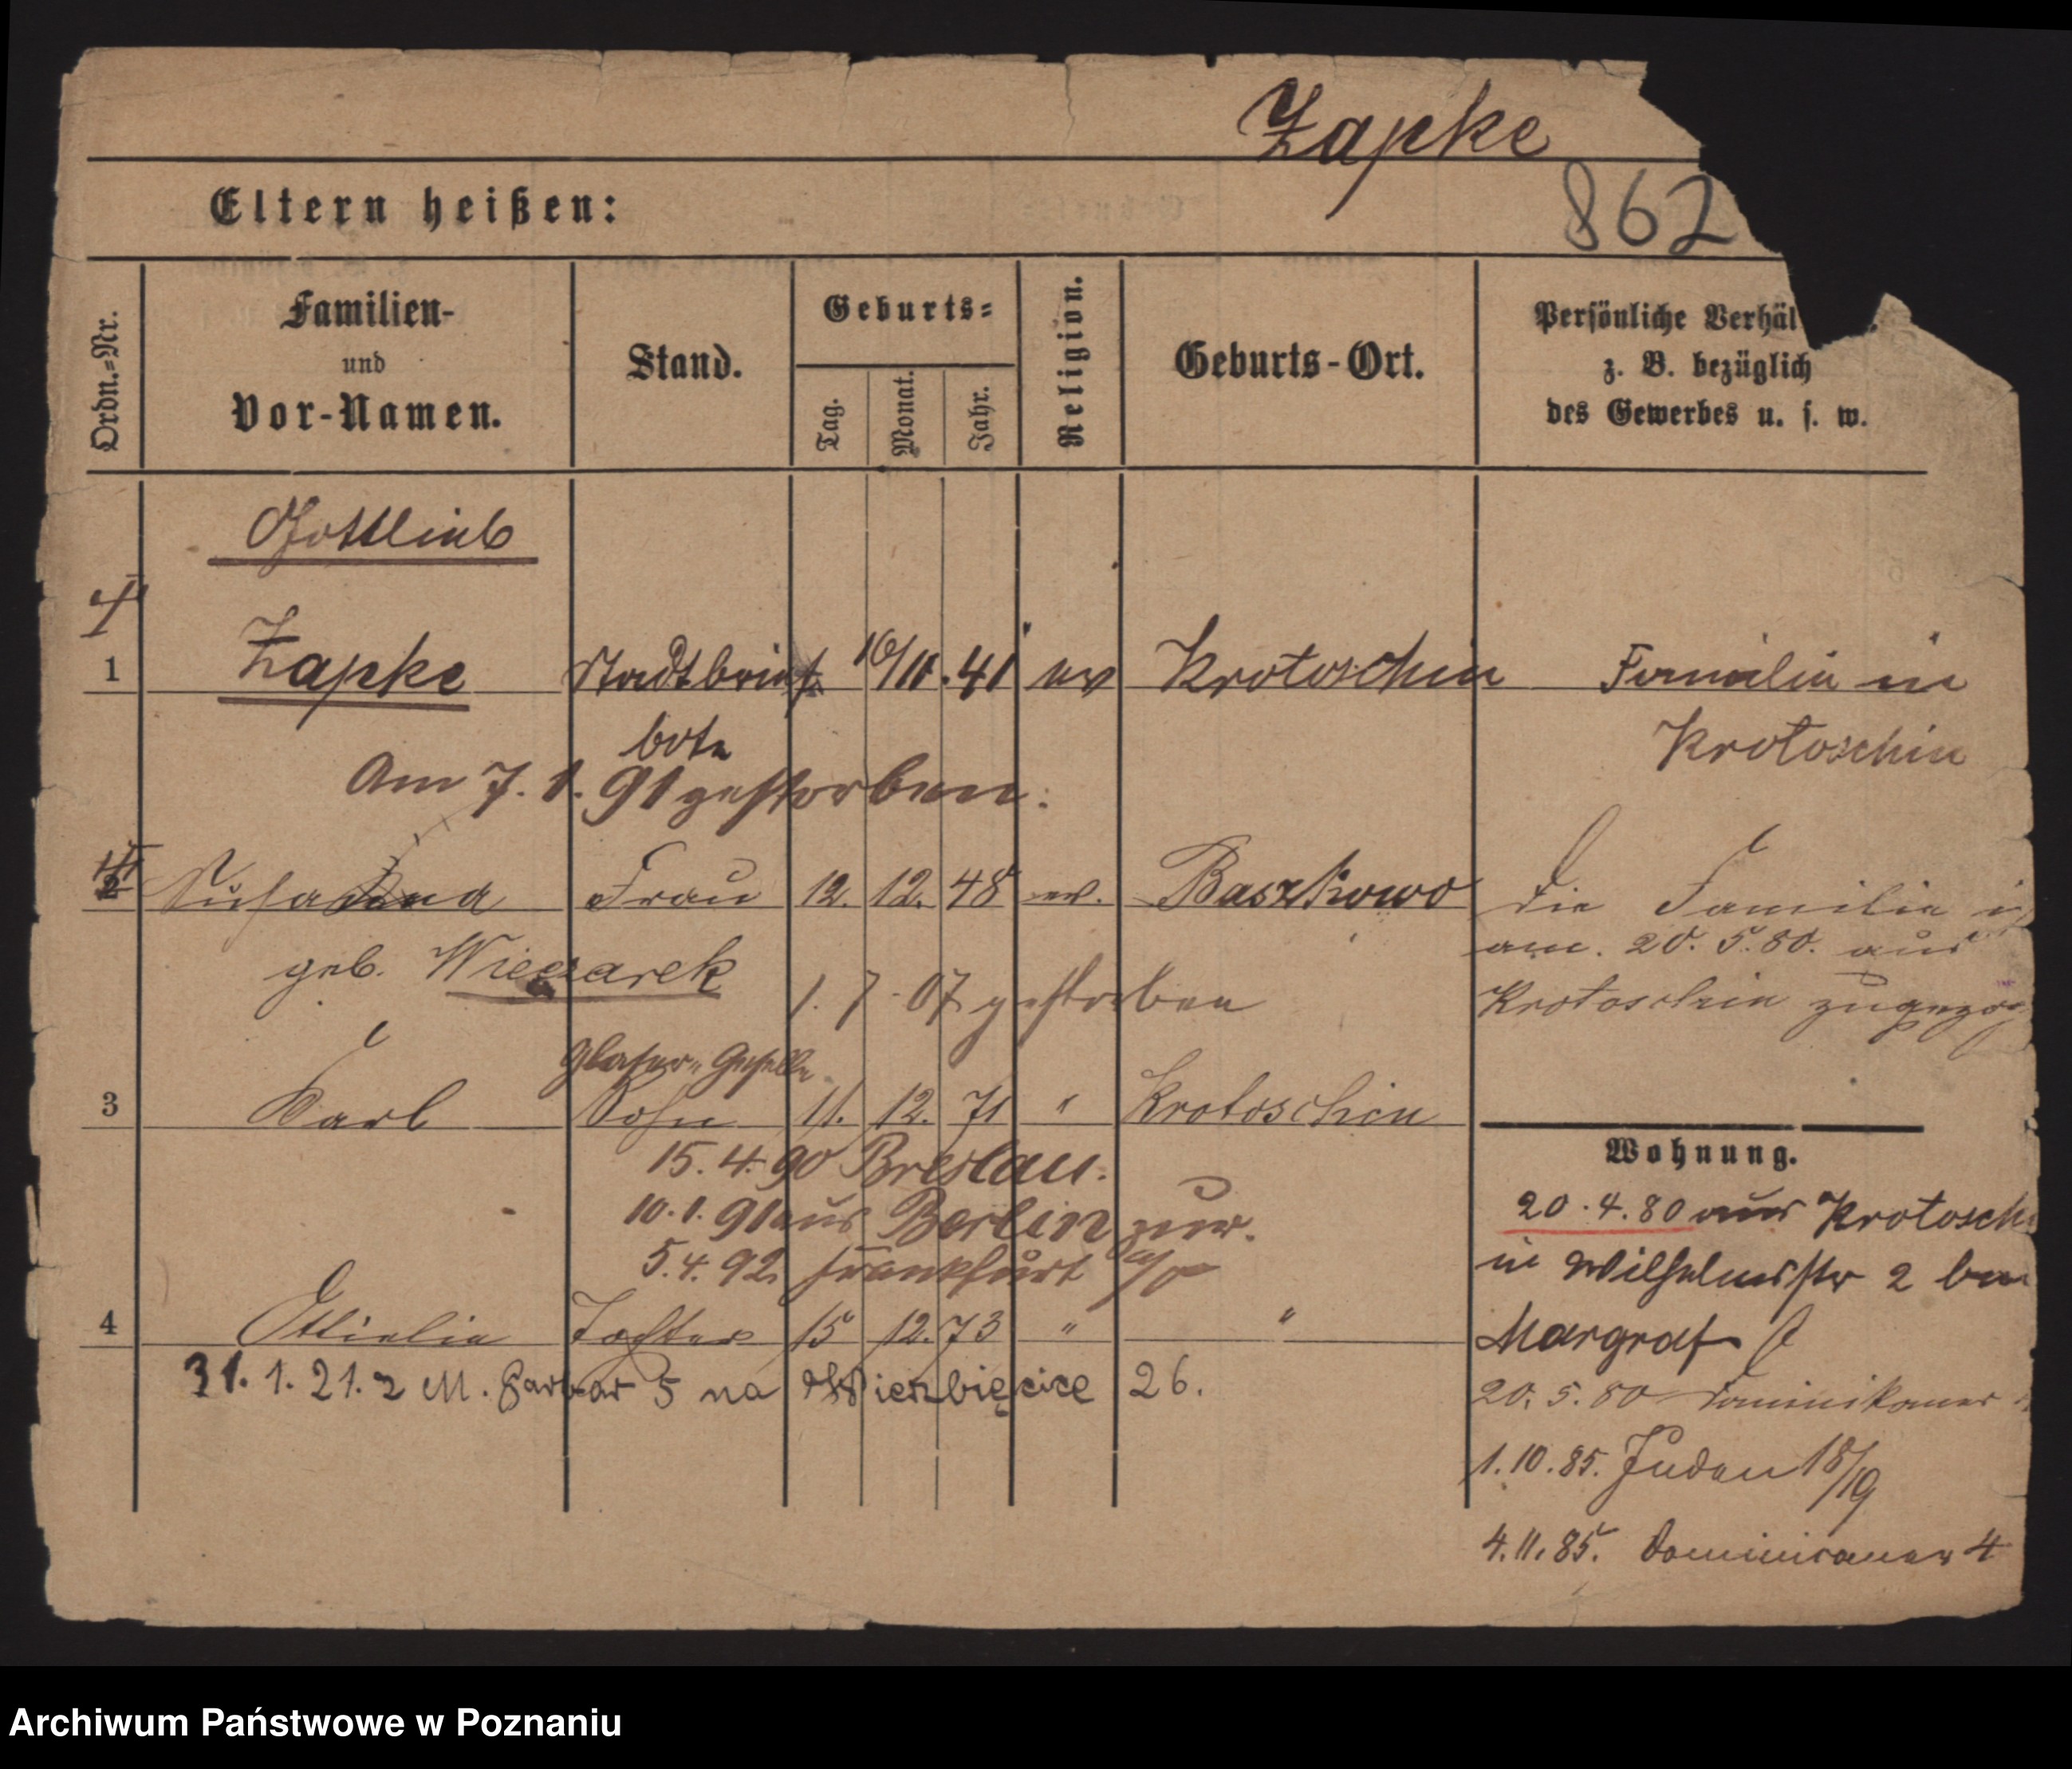 Zapke
862
Eltern heißen:
Ordn.=Nr.
Familien-
und
Vor-Namen.
Stand.
Geburts=
Tag.
Monat.
Jahr.
Religion.
Geburts-Ort.
Persönliche Verhäl
z. B. bezüglich
des Gewerbes u. s. w.
Gottlieb
1 Zapke Stadtbrief 16/11.41 ev Krotoschin Familie in
bote Krotoschin
Am 7.1.91 gestorben.
2 Susanna Frau 12. 12. 48 ev. Baszkowo Die Familie
am. 20. 5. 80. aus
geb. Wieczarek
1. 7 07 gestorben
Krotoschin zugezog
Glaser-Geselle
3 Karl Sohn 11. 12. 71 " Krotoschin
15.4.90 Breslau.
10.1.91 aus Berlin zur.
5.4.92. Frankfurt a/O
4 Ottielie Tochter 15 12. 73 " "
31.1.21. z M. Garbar 5 na Wierzbięcice 26.
Wohnung.
20.4.80 aus Krotosch
in Wilhelmsstr 2 bei
Margraf
20.5.80 Dominikaner
1.10.85. Juden 18/19
4.11.85. Dominicaner 4
Archiwum Państwowe w Poznaniu